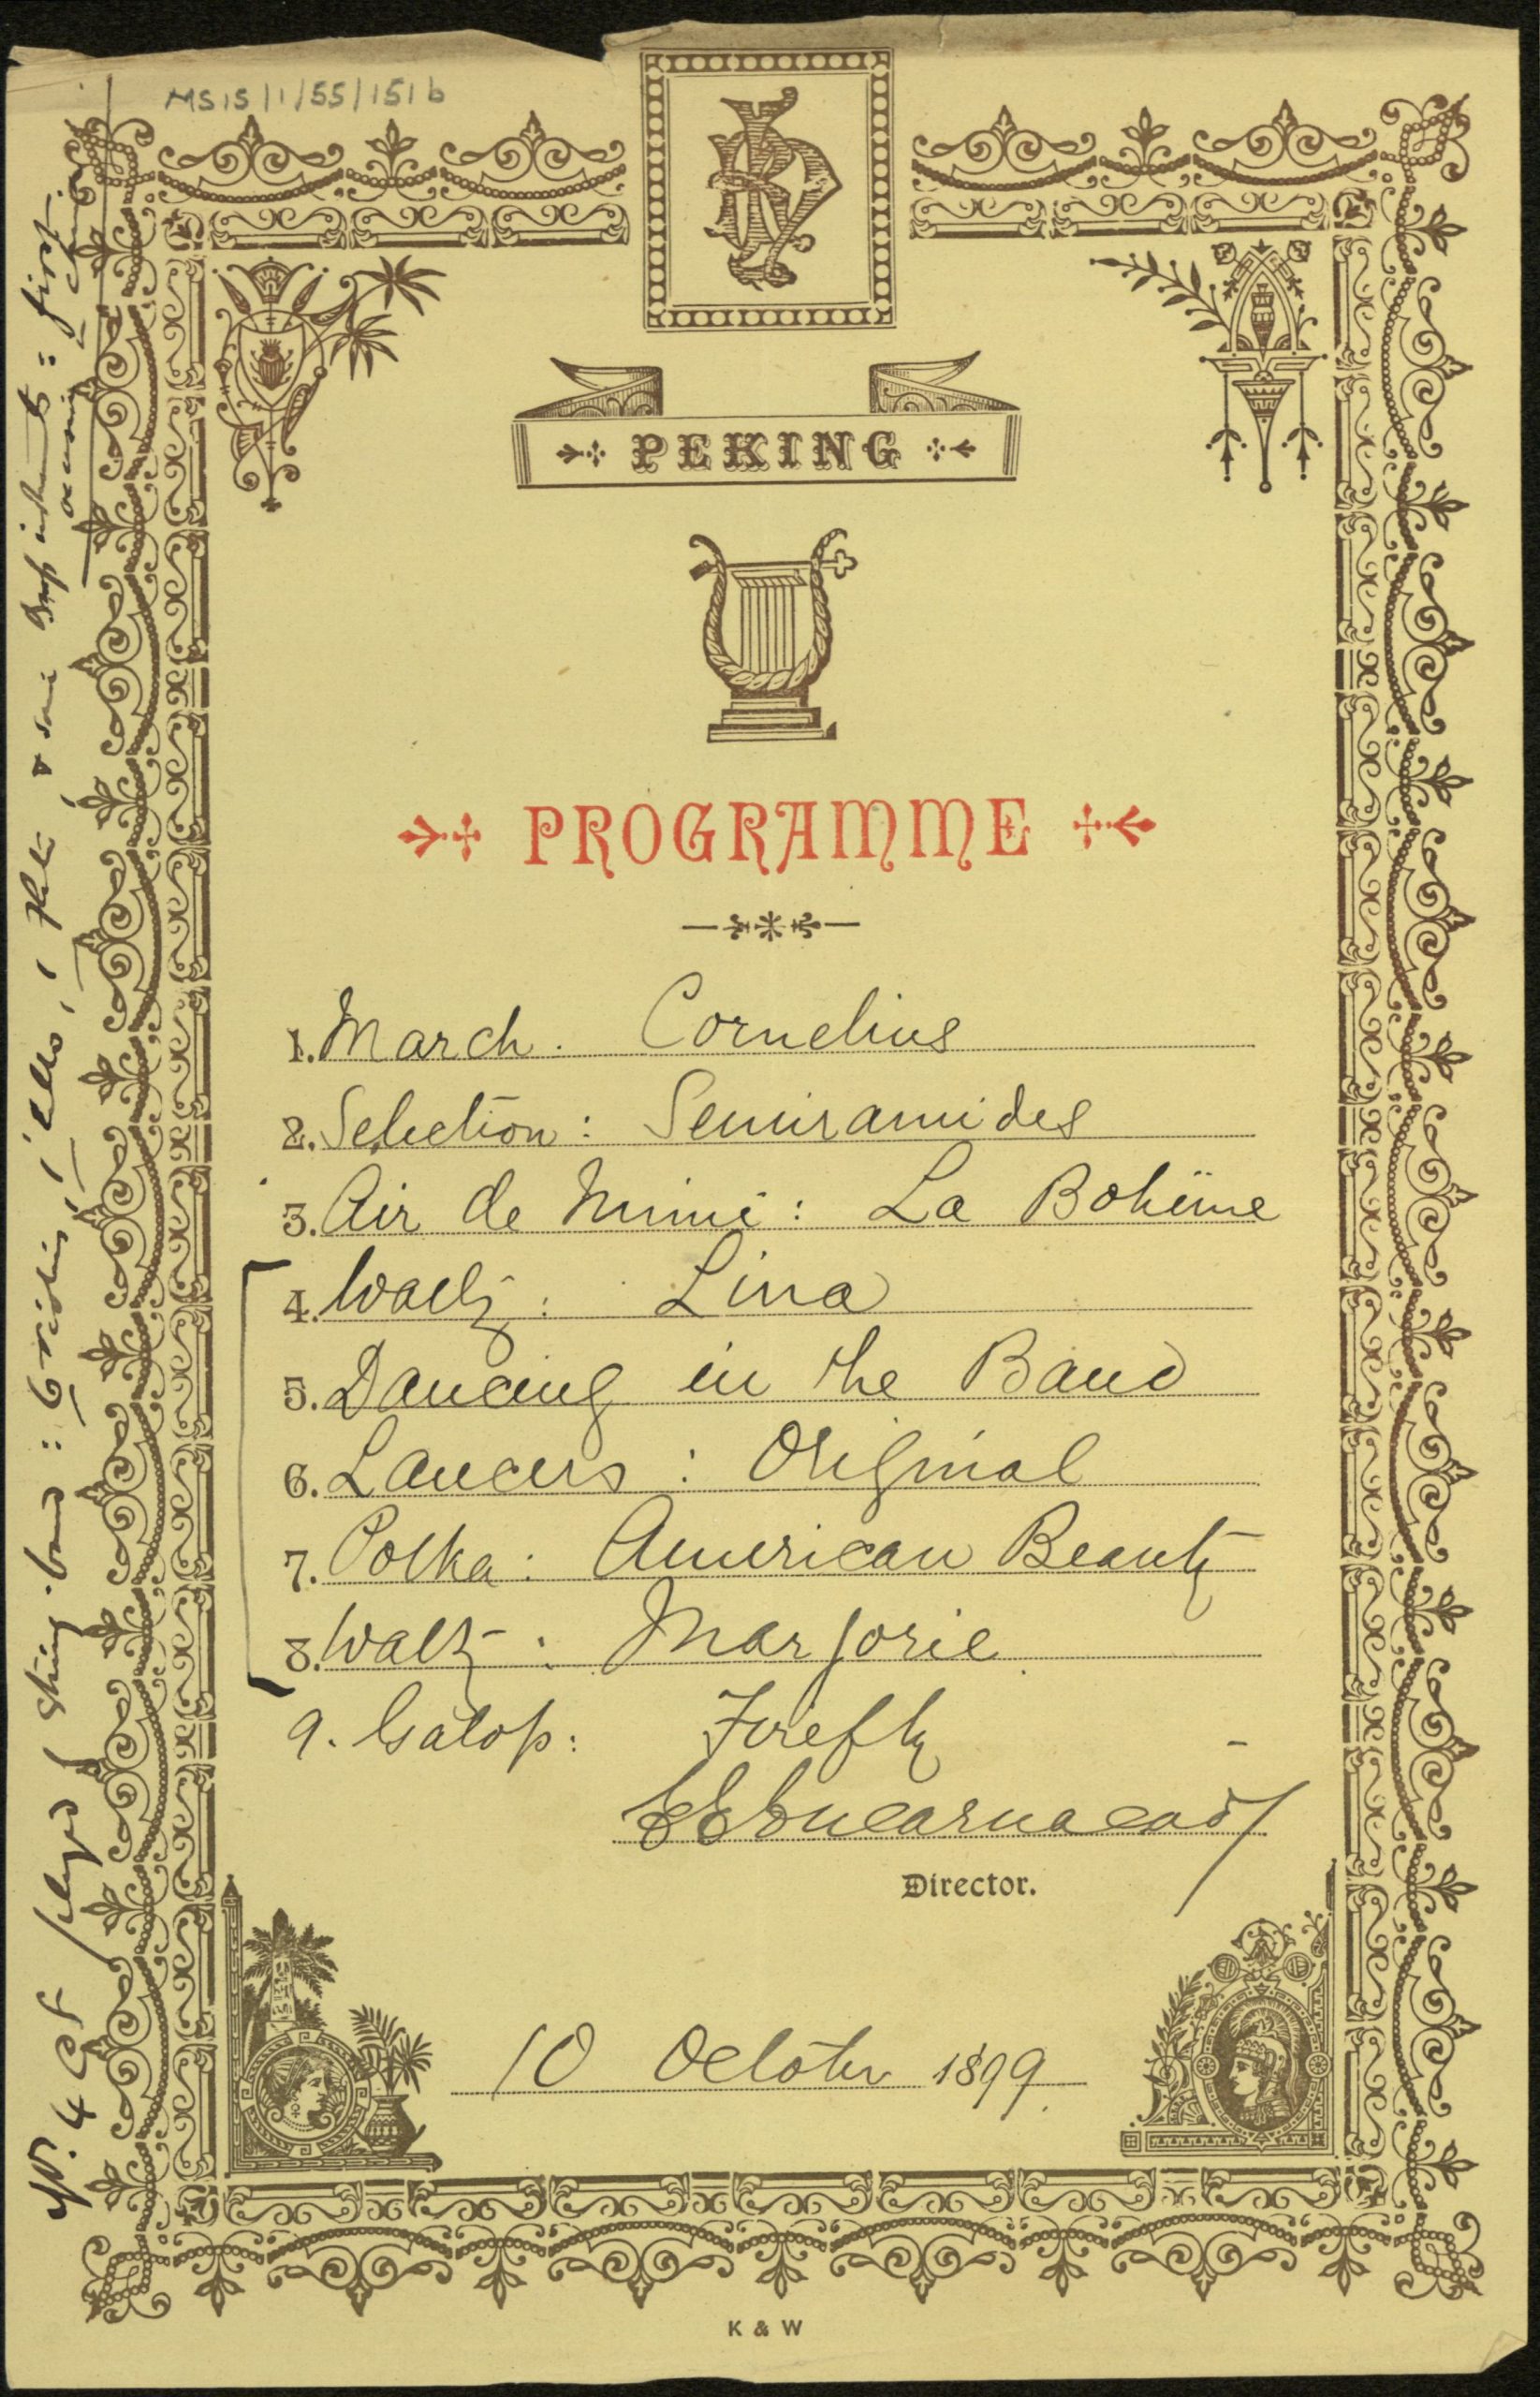 MS 15/1/55/151b
PEKING
PROGRAMME
1. March. Cornelius
2. Selection: Semiramides
3. Air de Mimi: La Bohême
4. Waltz: Lina
5. Dancing in the Band
6. Lancers: Original
7. Polka: American Beauty
8. Waltz: Marjorie
9. Galop: Firefly
E E Encarnacao
Director.
10 October 1899.
K & W
No. 4 played string-band: 6 violins, 1 cello, 1 flute, & some Brass instruments: first